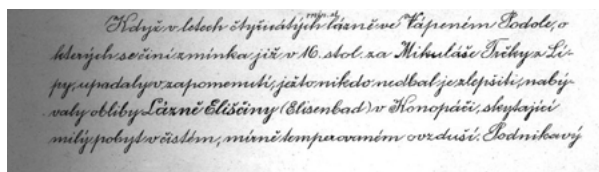 Když v letech čtyřicátých min. st. lázně ve Vápeném Podole, o
kterých se činí zmínka již v 16. stol. za Mikuláše Trčky z Lí-
py, upadaly v zapomenutí, ježto nikdo nedbal je zlepšiti, nabý-
valy obliby Lázně Eliščiny (Elisenbad) v Konopáči, skytající
milý pobyt v čistém, mírně temperovaném ovzduší. Podnikavý